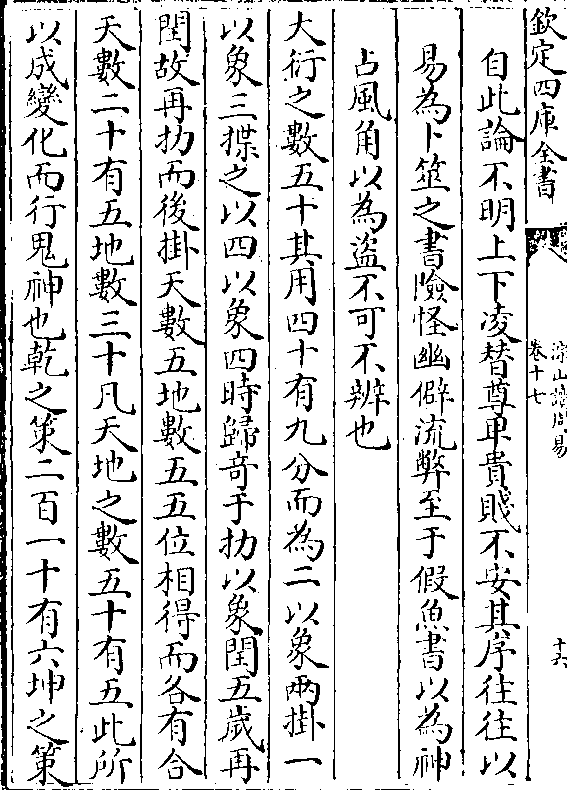 欽定四庫全書
深山讀周易
卷十七
十六
自此論不明上下凌替尊卑貴賤不安其序往往以
易為卜筮之書險怪幽僻流弊至于假魚書以為神
占風角以為盗不可不辨也
大衍之數五十其用四十有九分而為二以象兩掛一
以象三揲之以四以象四時歸奇于扐以象閏五歲再
閏故再扐而後掛天數五地數五五位相得而各有合
天數二十有五地數三十凡天地之數五十有五此所
以成變化而行鬼神也乾之策二百一十有六坤之策